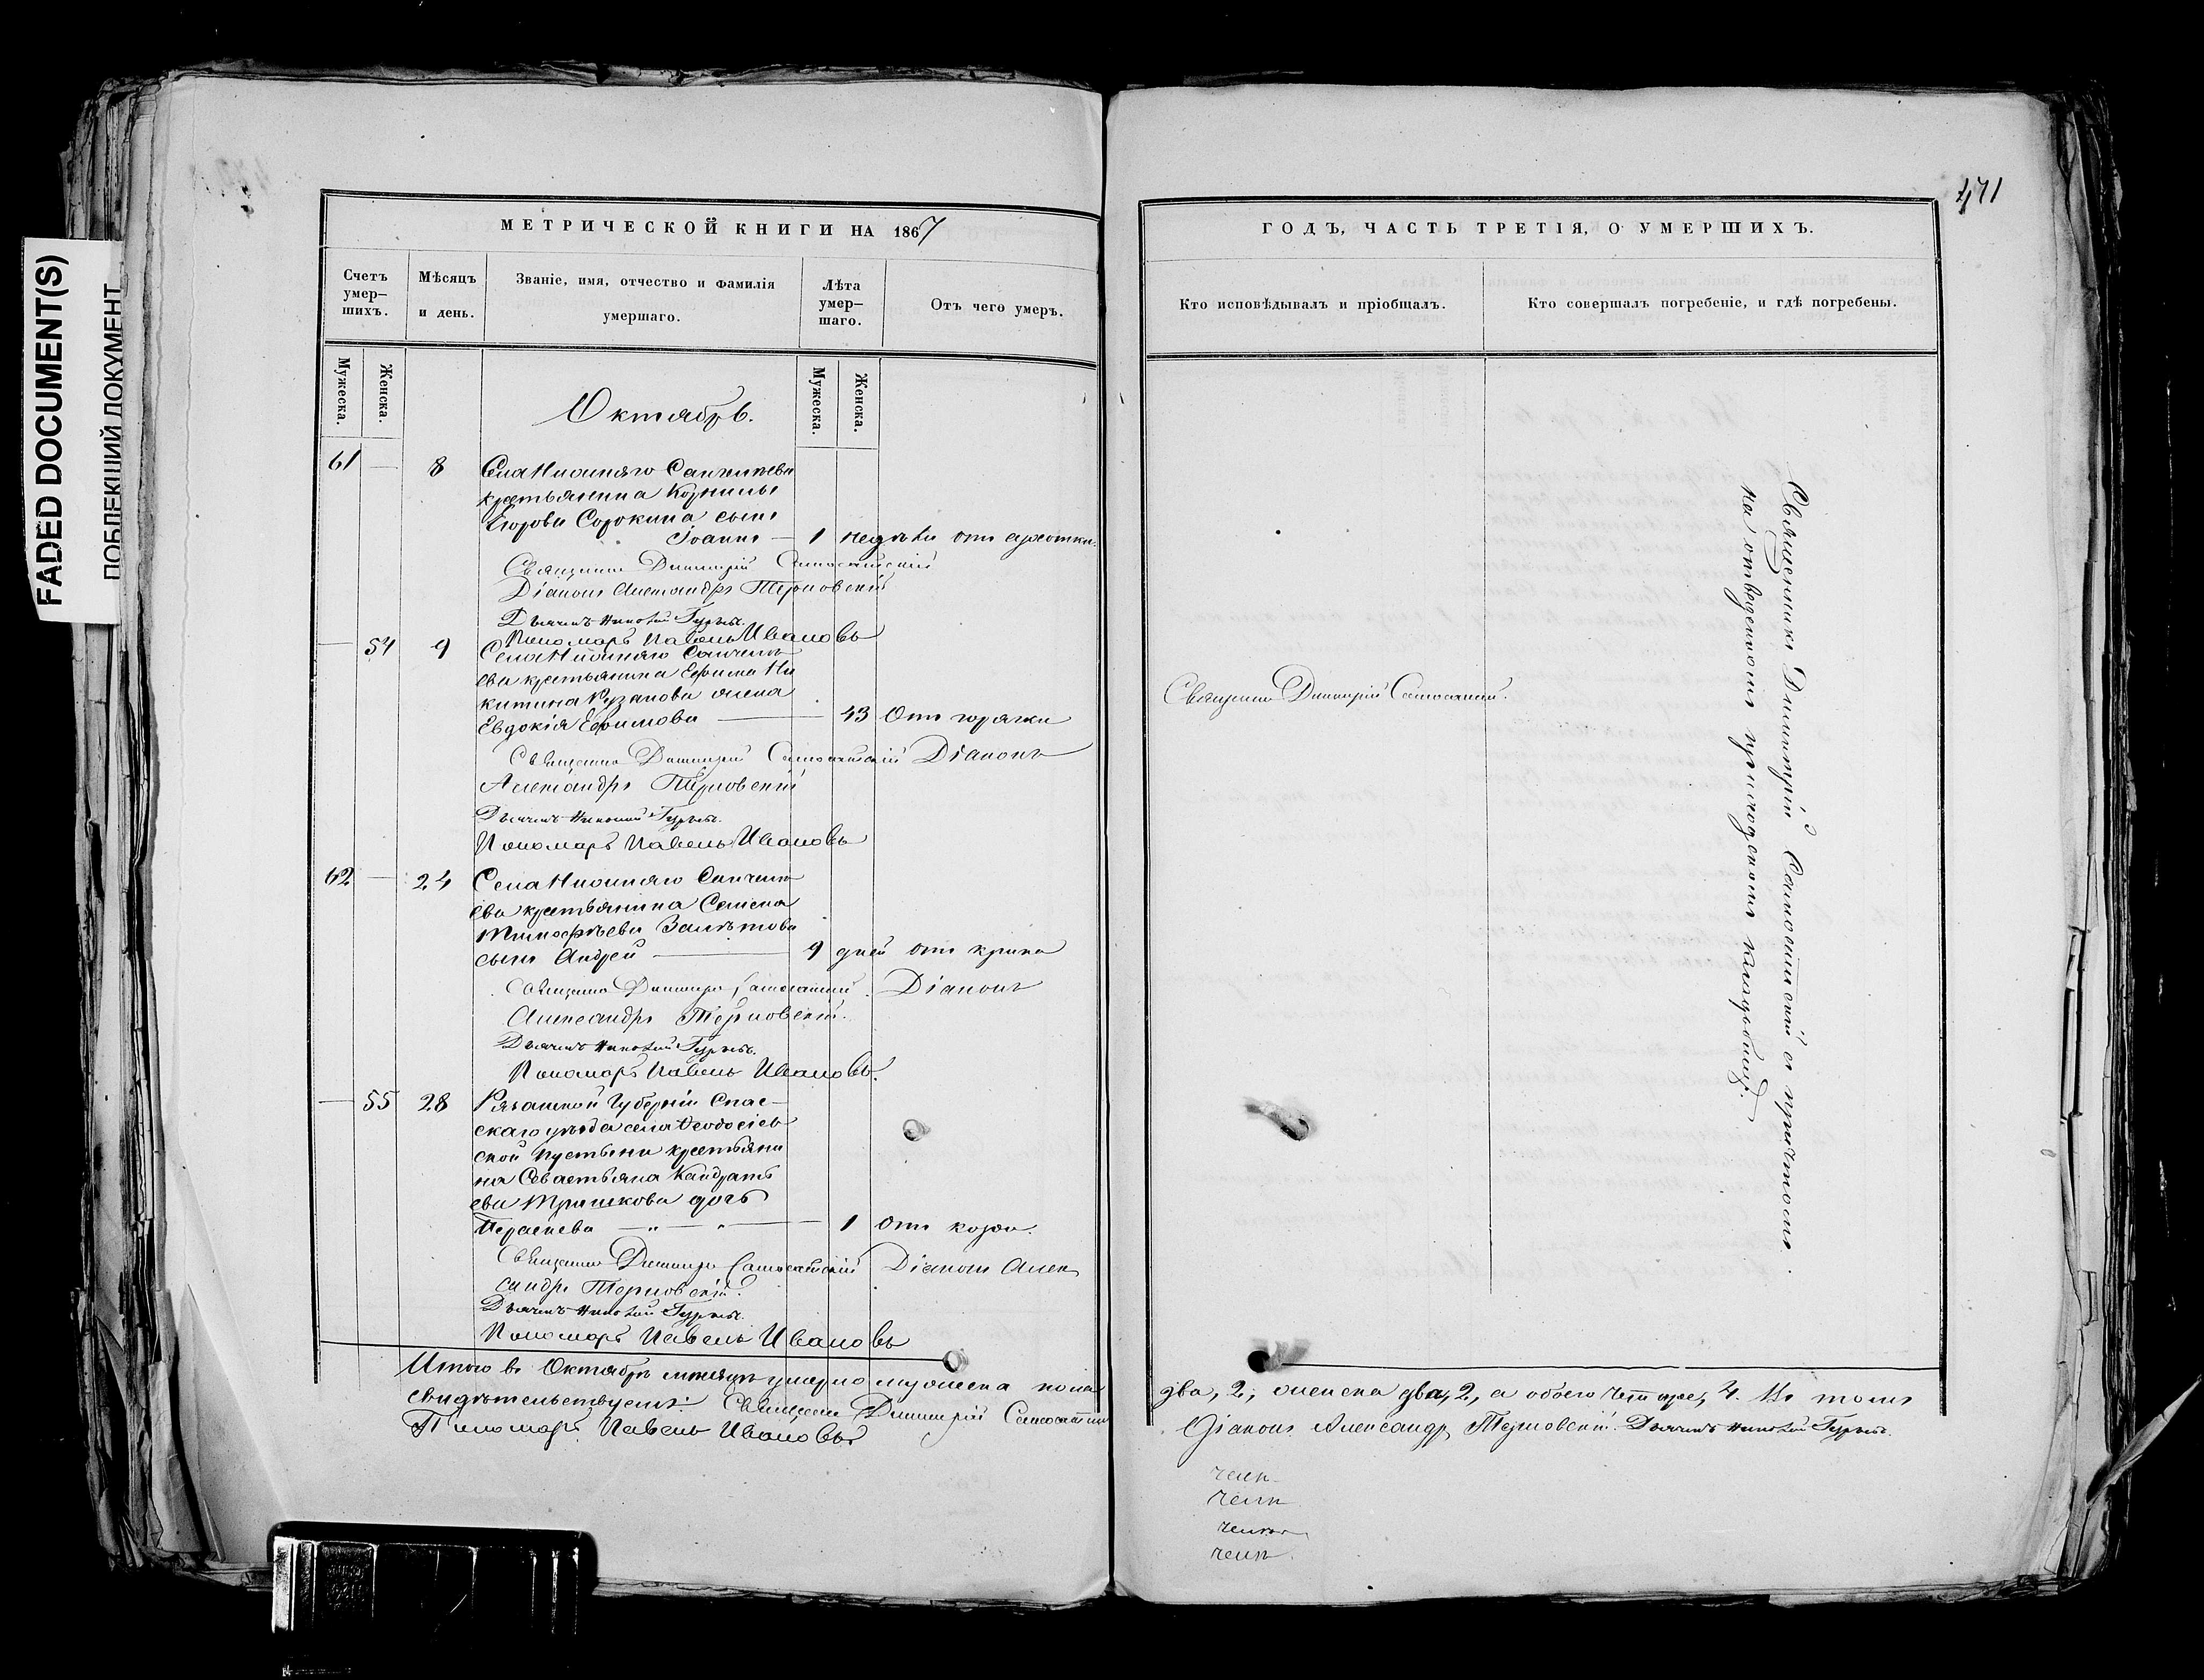 FADED DOCUMENT(S)
ПОБЛЕКШИЙ ДОКУМЕНТ
471
МЕТРИЧЕСКОЙ КНИГИ НА 1867
ГОДЪ, ЧАСТЬ ТРЕТІЯ, О УМЕРШИХЪ.
Счетъ умер-шихъ.
Мѣсяцъ и день.
Званіе, имя, отчество и фамилія умершаго.
Лѣта умер-шаго.
Отъ чего умеръ.
Кто исповѣдывалъ и пріобщалъ.
Кто совершалъ погребеніе, и гдѣ погребены.
Мужеска.
Женска.
Мужеска.
Женска.
Октябрь.
61 — 8 Села
крестьянина Корнилы
Егорова Сорокина сынъ
Іоаннъ — 1 недѣли отъ
Священникъ Димитрій
Діаконъ Александръ Терновскій
Дьячекъ Николай Гурьевъ.
Пономарь Павелъ Ивановъ
— 54 9 Села
ева крестьянина Ефима Ни
китина жена
Евдокія Ефимова — 43 Отъ горячки
Священникъ Димитрій Діаконъ
Александръ Терновскій
Дьячекъ Николай Гурьевъ.
Пономарь Павелъ Ивановъ
62 — 24 Села
ева крестьянина Семена
Тимофѣева
сынъ Андрей — 9 дней отъ крика
Священникъ Димитрій Діаконъ
Александръ Терновскій.
Дьячекъ Николай Гурьевъ.
Пономарь Павелъ Ивановъ.
— 55 28 Рязанской Губерніи Спас-
скаго уѣзда села Ѳеодосіев
ской пустыни крестьяни
на Севастьяна Кандрать
ева Тришкова дочь
Параскева — 1 Отъ кори.
Священникъ Димитрій Діаконъ Алек
сандръ Терновскій.
Дьячекъ Николай Гурьевъ.
Пономарь Павелъ Ивановъ
Итого въ Октябрѣ мѣсяцѣ умерло мужеска пола
свидѣтельствуемъ: Священникъ Димитрій
Пономарь Павелъ Ивановъ
Священникъ Димитрій
Священникъ Димитрій съ причтомъ
на отведенномъ приходскомъ кладбищѣ.
два, 2, женска два, 2, а обоего четыре, 4. Въ томъ
Діаконъ Александръ Терновскій. Дьячекъ Николай Гурьевъ.